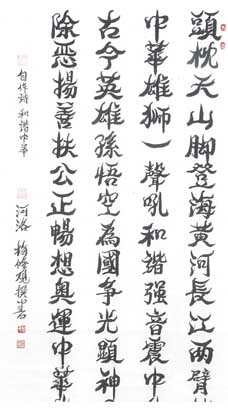 頭枕天山脚登海黄河長江兩臂
中華雄獅一聲吼和諧强音震中
古今英雄孫悟空為國爭光顯神
除惡揚善扶公正暢想奧運中華
自作詩 和諧中華
河洛 修 撰書